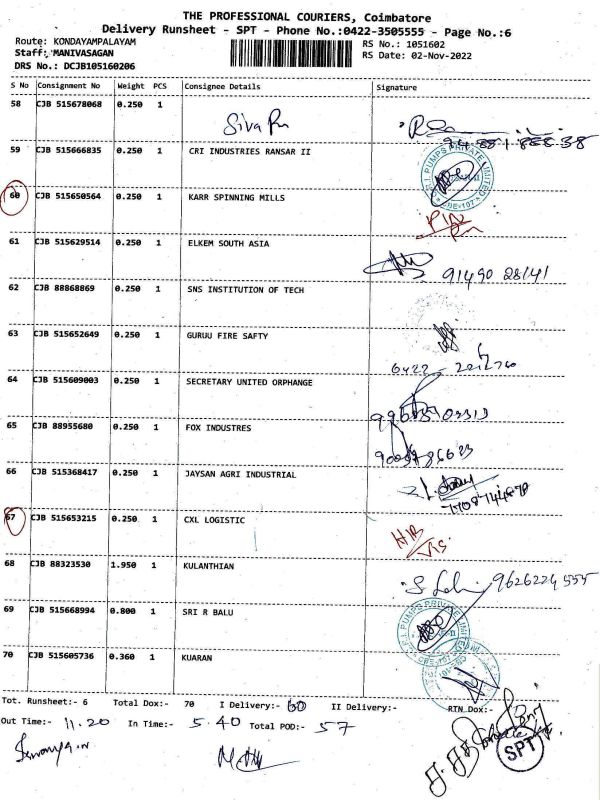 THE PROFESSIONAL COURIERS, Coimbatore
Delivery Runsheet - SPT - Phone No.:0422-3505555 - Page No.:6
Route: KONDAYAMPALAYAM RS No.: 1051602
Staff: MANIVASAGAN RS Date: 02-Nov-2022
DRS No.: DCJB105160206
S No Consignment No Weight PCS Consignee Details Signature
58 CJB 515678068 0.250 1
Siva
59 CJB 515666835 0.250 1 CRI INDUSTRIES RANSAR II
PUMPS PRIVATE LIMITED
60 CJB 515650564 0.250 1 KARR SPINNING MILLS
61 CJB 515629514 0.250 1 ELKEM SOUTH ASIA
91490 28141
62 CJB 88868869 0.250 1 SNS INSTITUTION OF TECH
63 CJB 515652649 0.250 1 GURUU FIRE SAFTY
64 CJB 515609003 0.250 1 SECRETARY UNITED ORPHANGE
65 CJB 88955680 0.250 1 FOX INDUSTRES
66 CJB 515368417 0.250 1 JAYSAN AGRI INDUSTRIAL
67 CJB 515653215 0.250 1 CXL LOGISTIC
68 CJB 88323530 1.950 1 KULANTHIAN
9626224555
69 CJB 515668994 0.800 1 SRI R BALU
70 CJB 515605736 0.360 1 KUARAN
Tot. Runsheet:- 6 Total Dox:- 70 I Delivery:- 60 II Delivery:- RTN Dox:-
Out Time:- 11.20 In Time:- 5.40 Total POD:- 57
SPT